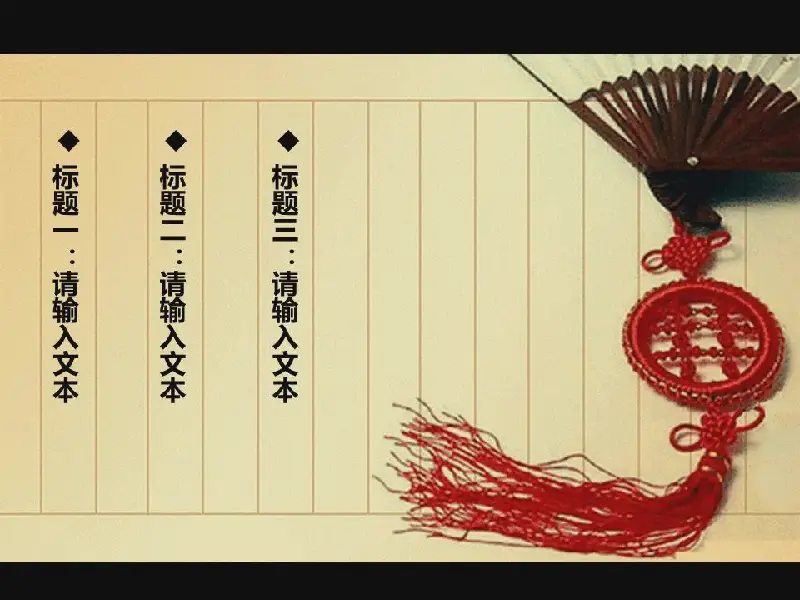 ◆ 标题一：请输入文本
◆ 标题二：请输入文本
◆ 标题三：请输入文本